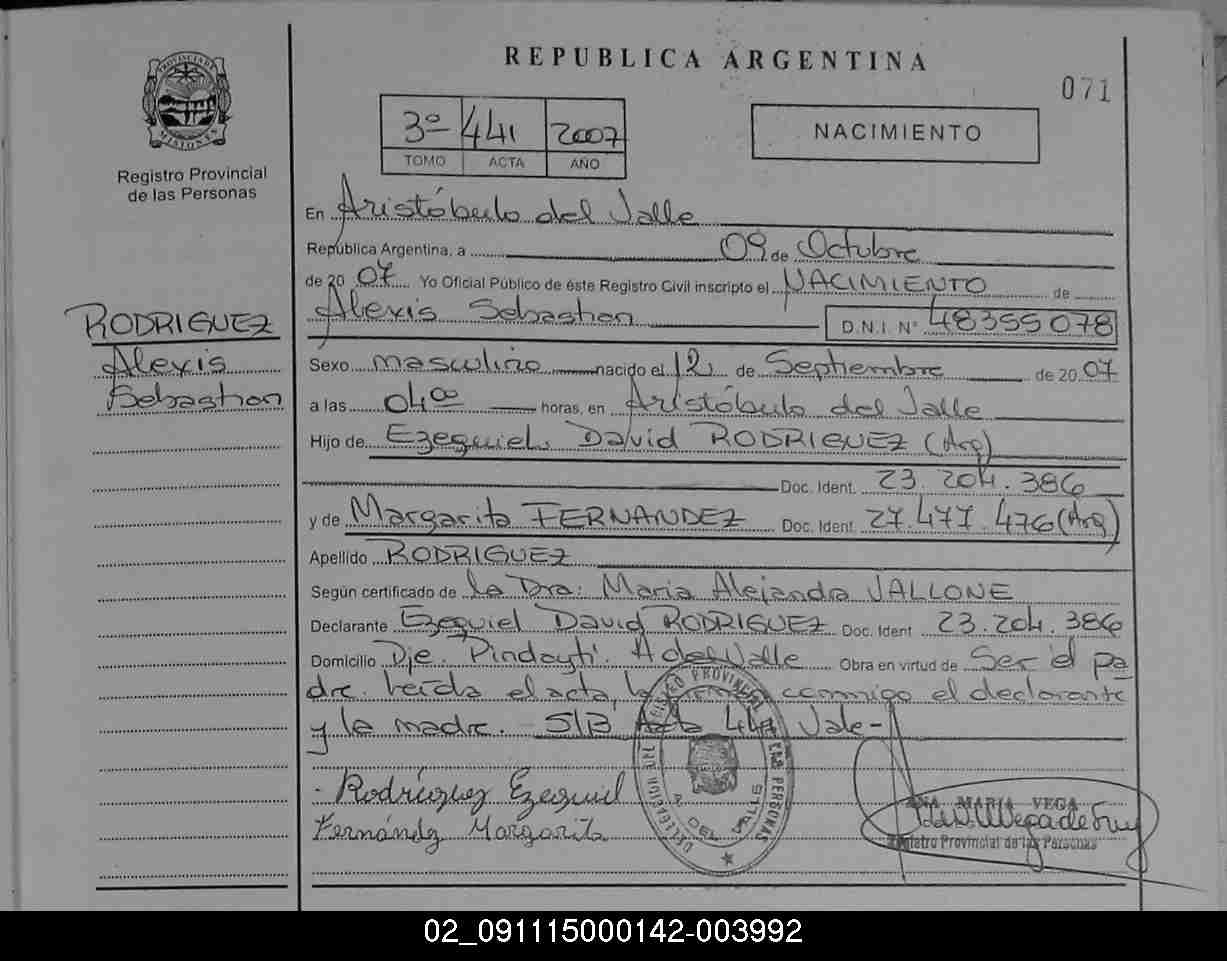 REPUBLICA ARGENTINA
071
PROVINCIA DE MISIONES
Registro Provincial
de las Personas
3º 441 2007
TOMO ACTA AÑO
NACIMIENTO
En Aristóbulo del Valle
República Argentina, a 09 de Octubre
de 20 07 Yo Oficial Público de éste Registro Civil inscripto el NACIMIENTO de
Alexis Sebastian D.N.I. N° 48355078
RODRIGUEZ
Alexis
Sebastian
Sexo masculino nacido el 12 de Septiembre de 20 07
a las 04 00 horas, en Aristóbulo del Valle
Hijo de Ezequiel David RODRIGUEZ (Arg)
Doc. Ident. 23.204.386
y de Margarita FERNANDEZ Doc. Ident. 27.477.476 (Arg)
Apellido RODRIGUEZ
Según certificado de la Dra: Maria Alejandra VALLONE
Declarante Ezequiel David RODRIGUEZ Doc. Ident 23.204.386
Domicilio Pje. Pindayti. A del Valle Obra en virtud de Ser el pa
dre. Leída el acta, la conmigo el declarante
y la madre. S/B Acta 441 Vale-
Rodríguez Ezequiel
Fernández Margarita
DELEGACION DEL REGISTRO PROVINCIAL DE LAS PERSONAS
A. DEL VALLE
ANA MARIA VEGA
Registro Provincial de las Personas
02_091115000142-003992